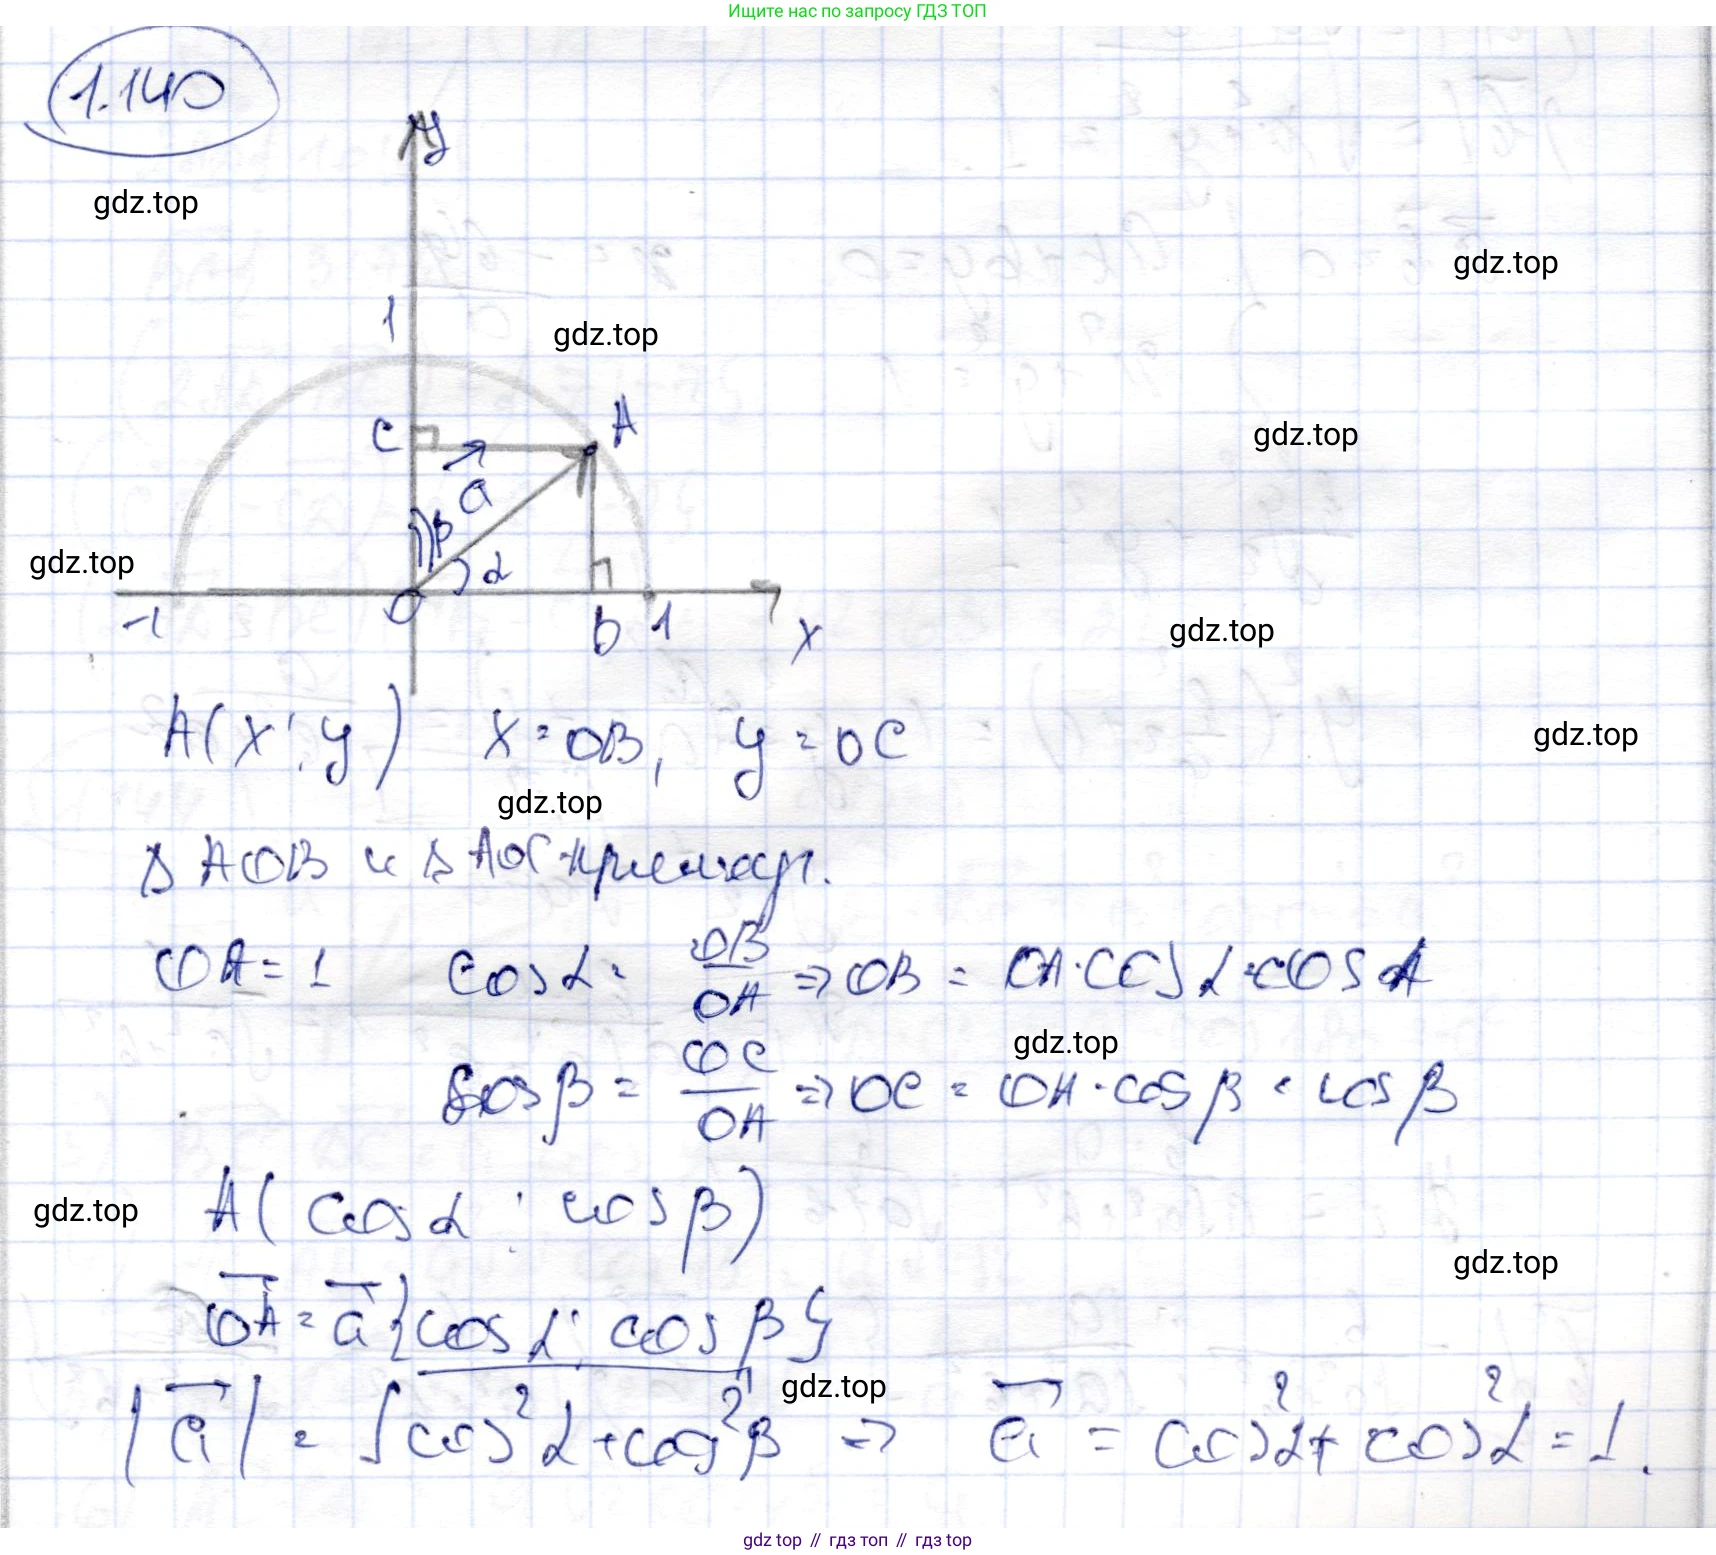 Ищите нас по запросу ГДЗ ТОП
1.140
y
gdz.top
gdz.top
1
gdz.top
C
A
gdz.top
a
β
α
gdz.top
-1
O
B
1
x
gdz.top
A(x; y) x = OB, y = OC
gdz.top
gdz.top
Δ AOB и Δ AOC - прямоуг.
OA = 1 cos α = OB/OA ⇒ OB = OA · cos α = cos α
gdz.top
cos β = OC/OA ⇒ OC = OA · cos β = cos β
A( cos α ; cos β )
gdz.top
gdz.top
OA = a {cos α; cos β}
gdz.top
|a| = √cos²α + cos²β ⇒ a = cos²α + cos²α = 1.
gdz top // гдз топ // гдз top